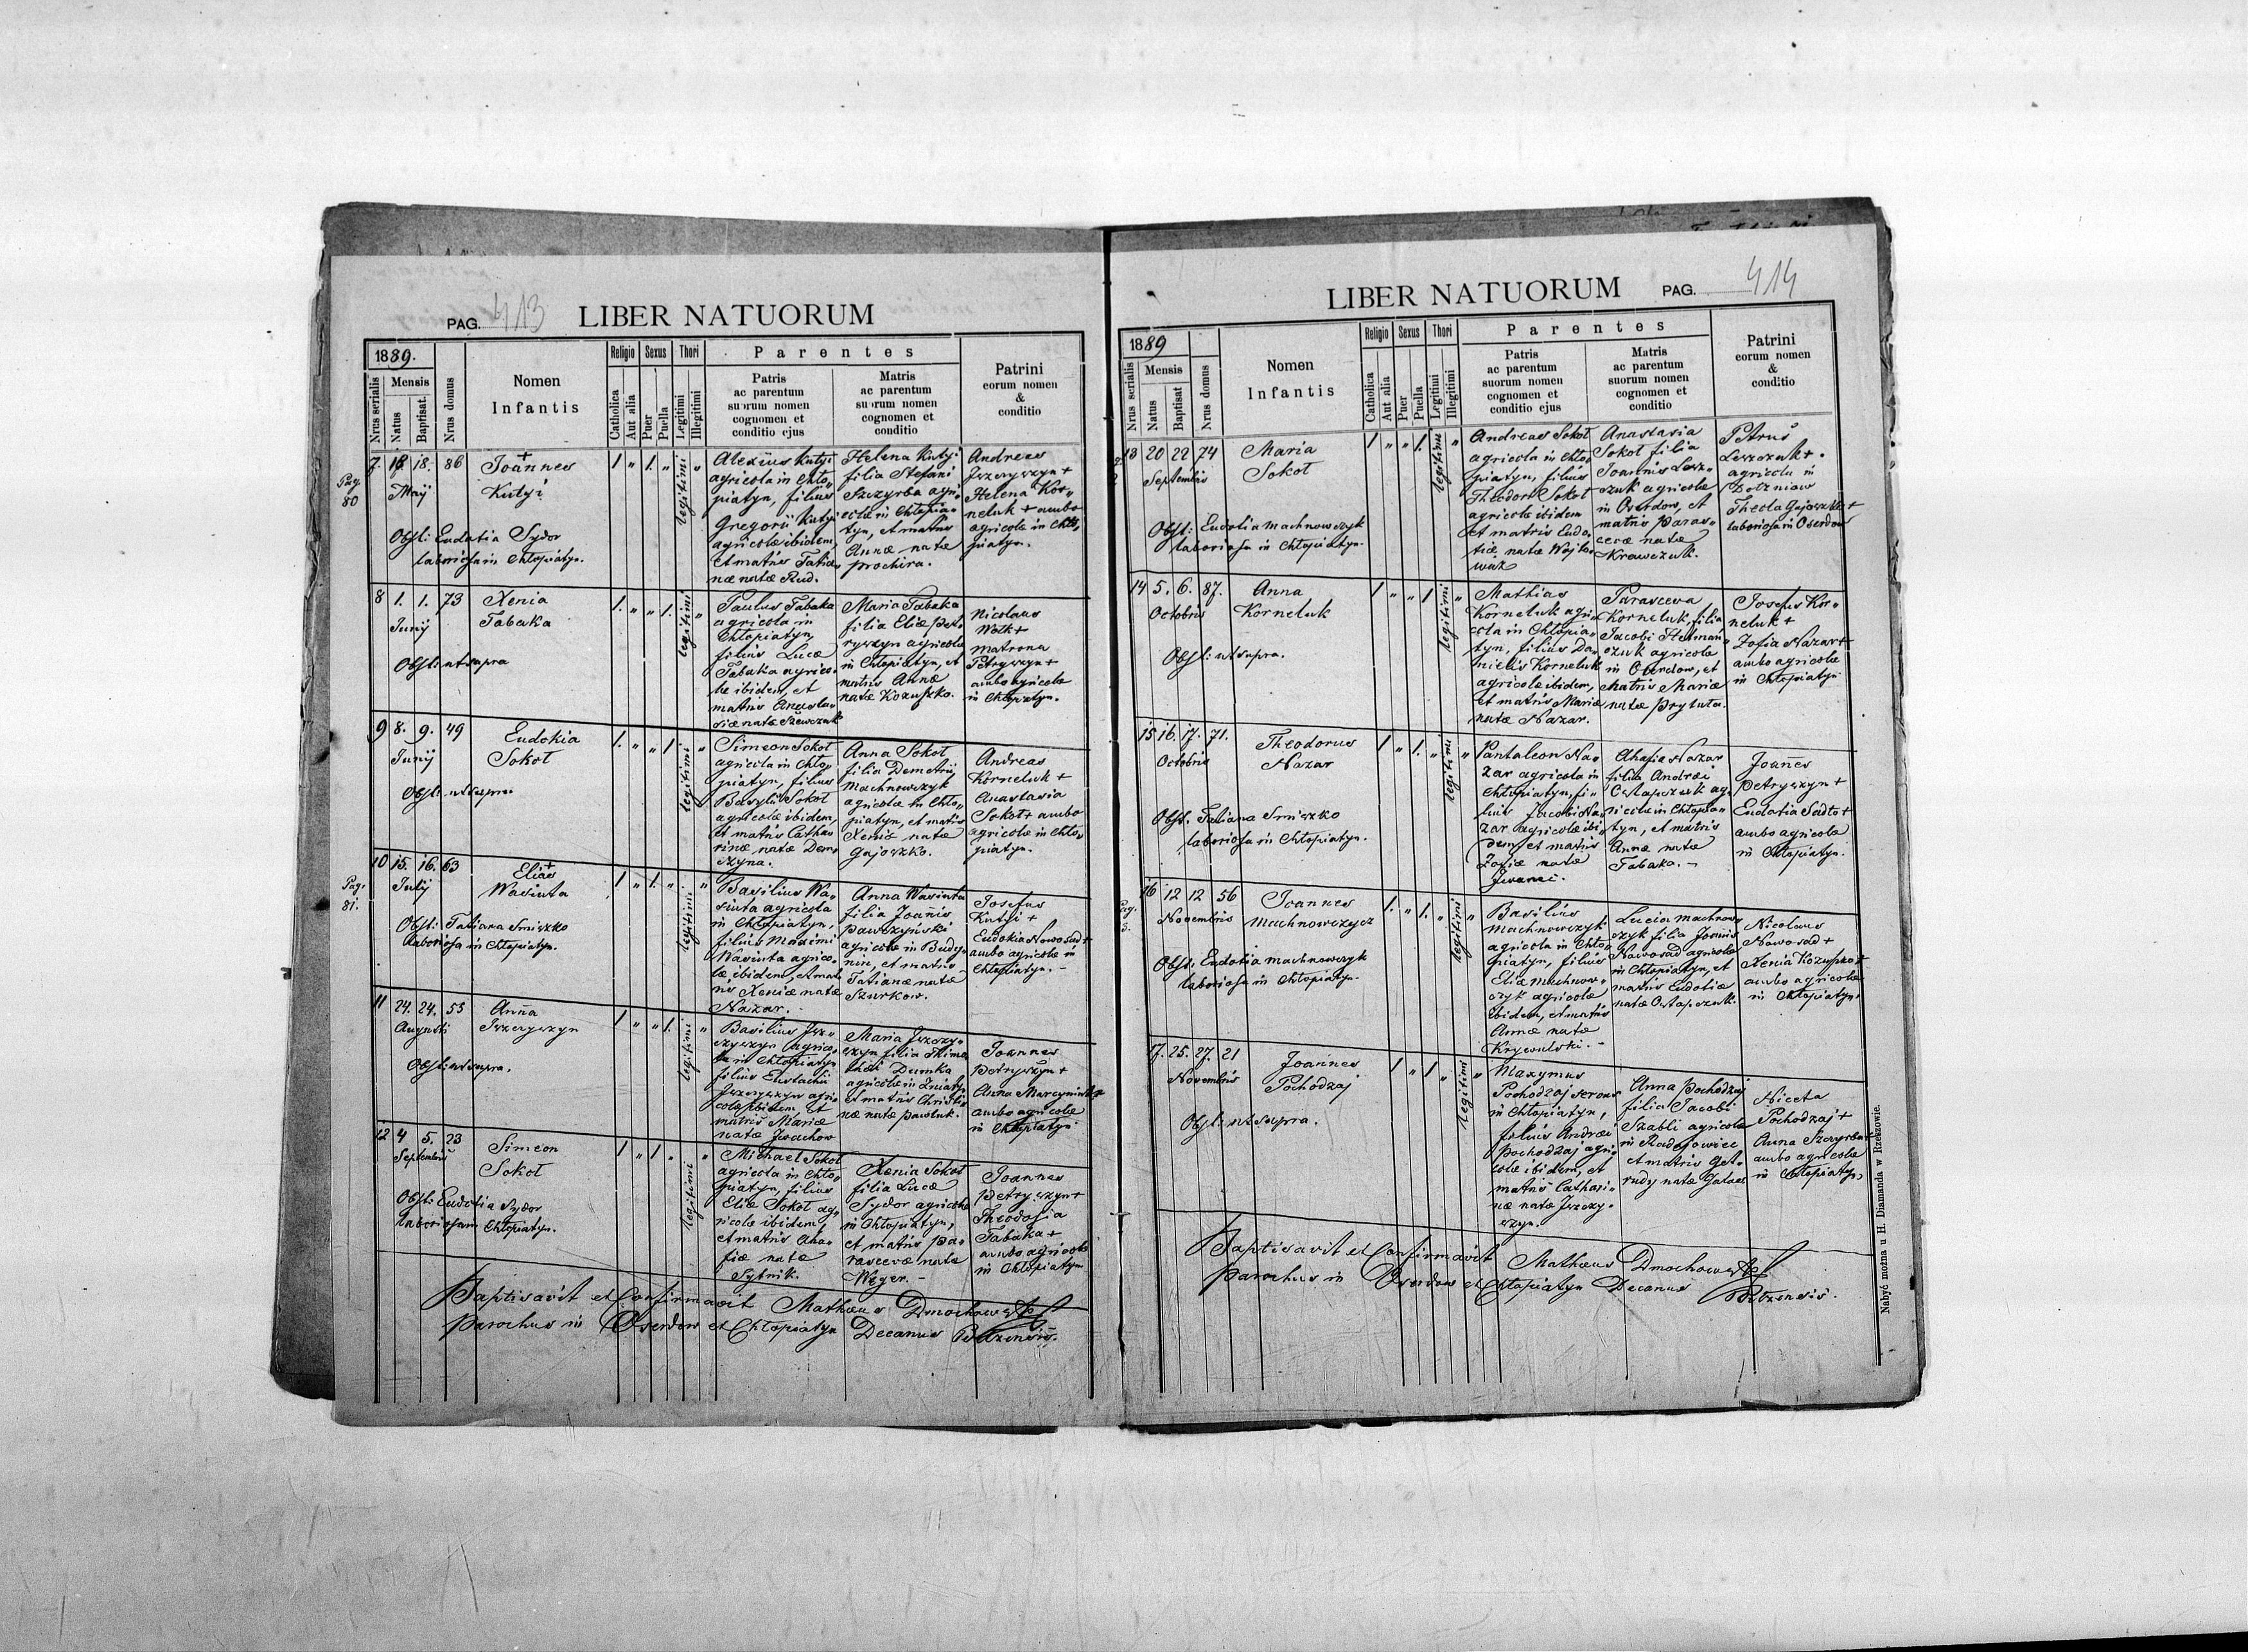 PAG. 413 LIBER NATUORUM
1889.
Nrus serialis
Mensis
Natus
Baptisat.
Nrus domus
Nomen
Infantis
Religio
Catholica
Aut alia
Sexus
Puer
Puella
Thori
Legitimi
Illegitimi
Parentes
Patris
ac parentum
suorum nomen
cognomen et
conditio ejus
Matris
ac parentum
suorum nomen
cognomen et
conditio
Patrini
eorum nomen
&
conditio
Pag.
80
7. 18. 18. 86
Maij
Joannes
Kutyi
Obst: Eudotia Sydor
laboriosa in Chłopiatyn.
1 „ 1. „ legitimi „
Alexius Kutyi
agricola in Chło„
piatyn, filius
Gregorii Kutyi
agricolæ ibidem,
et matris Tatia„
næ natæ Rud.
Helena Kutyi
filia Stefani
Szczyrba agri„
colæ in Chłopia„
tyn, et matris
Annæ natæ
Prochira.
Andreas
Jszczyszyn +
Helena Kor„
neluk + ambo
agricolæ in Chło„
piatyn.
8 1. 1. 73
Junij
Xenia
Tabaka
Obst: ut supra
1. „ „ 1. legitimi „
Paulus Tabaka
agricola in
Chłopiatyn,
filius Lucæ
Tabaka agrico„
læ ibidem, et
matris Anasta„
siæ natæ Szewczuk
Maria Tabaka
filia Eliæ Pet„
ryszyn agricolæ
in Chłopiatyn, et
matris Annæ
natæ Kozuszko.
Nicolaus
Wołk +
Matrona
Petryszyn +
ambo agricolæ
in Chłopiatyn.
9 8. 9. 49
Junij
Eudokia
Sokoł
Obst: ut supra
1. „ „ 1. legitimi „
Simeon Sokoł
agricola in Chło„
piatyn, filius
Basylii Sokoł
agricolæ ibidem,
et matris Catha„
rinæ natæ Dem„
czyna.
Anna Sokoł
filia Demetrij
Machnowczyk
agricolæ in Chło„
piatyn, et matris
Xeniæ natæ
Gajoszko.
Andreas
Korneluk +
Anastasia
Sokoł + ambo
agricolæ in Chło„
piatyn.
Pag.
81.
10 15. 16. 63
Julij
Elias
Wasiuta
Obst: Tatiana Smiszko
laboriosa in Chłopiatyn.
1 „ 1. „ legitimi „
Basilius Wa„
siuta agricola
in Chłopiatyn,
filius Maximi
Wasiuta agrico„
læ ibidem, et mat„
ris Xeniæ natæ
Nazar. –
Anna Wasiuta
filia Joannis
Pawszyński
agricolæ in Budy„
nin, et matris
Tatianæ natæ
Szurkow.
Josefus
Kutyi +
Eudokia Nowosad +
ambo agricolæ in
Chłopiatyn. –
11 24. 24. 53
Augusti
Anna
Jszczyszyn
Obst: ut supra.
1 „ „ 1. legitimi „
Basilius Jsz„
czyszyn agrico„
la in Chłopiatyn
filius Eustachii
Jszczyszyn agri„
colæ ibidem, et
matris Mariæ
natæ Jwachow
Maria Jszczy„
szyn filia
Dumka
agricolæ in Żniatyn
et matris Christi„
næ natæ Pawluk.
Joannes
Petryszyn +
Anna
ambo agricolæ
in Chłopiatyn
12 4 5. 23
Septembris
Simeon
Sokoł
Obst: Eudotia Sydor
laboriosa in Chłopiatyn.
1 „ 1 „ legitimi „
Michael Sokoł
agricola in Chło„
piatyn, filius
Eliæ Sokoł ag„
ricolæ ibidem,
et matris Aha„
fiæ natæ
Sytnik.
Xenia Sokoł
filia Lucæ
Sydor agricolæ
in Chłopiatyn,
et matris Pa„
rascevæ natæ
Węger. –
Joannes
Petryszyn +
Theodosia
Tabaka +
ambo agricolæ
in Chłopiatyn
Baptisavit et Confirmavit Mathæus Dmochowski
Parochus in Oserdow et Chłopiatyn Decanus Bełzensis.
LIBER NATUORUM PAG. 414
1889
Nrus serialis
Mensis
Natus
Baptisat
Nrus domus
Nomen
Infantis
Religio
Catholica
Aut alia
Sexus
Puer
Puella
Thori
Legitimi
Illegitimi
Parentes
Patris
ac parentum
suorum nomen
cognomen et
conditio ejus
Matris
ac parentum
suorum nomen
cognomen et
conditio
Patrini
eorum nomen
&
conditio
13 20 22 74
Septembris
Maria
Sokoł
Obst: Eudotia Machnowczyk
laboriosa in Chłopiatyn.
1 „ „ 1. legitimi „
Andreas Sokoł
agricola in Chło„
piatyn, filius
Theodori Sokoł
agricolæ ibidem
et matris Eudo„
tiæ natæ Wojto„
wicz
Anastasia
Sokoł filia
Joannis Lesz„
czuk agricolæ
in Oserdow, et
matris Paras„
cevæ natæ
Krawczuk.
Petrus
Leszczuk +
agricola in
Dołzniow
Thecla Gajoszko +
laboriosa in Oserdow
14 5. 6. 87.
Octobris
Anna
Korneluk
Obst: ut supra.
1 „ „ 1 legitimi „
Mathias
Korneluk agri„
cola in Chłopia„
tyn, filius Da„
nielis Korneluk
agricolæ ibidem,
et matris Mariæ
natæ Nazar.
Parasceva
Korneluk, filia
Jacobi Hetman„
czuk agricolæ
in Oserdow, et
matris Mariæ
natæ Prytuła.
Josefus Kor„
neluk +
Zofia Nazar +
ambo agricolæ
in Chłopiatyn
15 16. 17. 71.
Octobris
Theodorus
Nazar
Obst: Tatiana Smiszko
laboriosa in Chłopiatyn.
1 „ 1. „ legitimi „
Pantaleon Na„
zar agricola in
Chłopiatyn, fi„
lius Jacobi Na„
zar agricolæ ibi„
dem, et matris
Zofiæ natæ
Jwanec.
Ahafia Nazar
filia Andreæ
Ostapczuk ag„
ricolæ in Chłopia„
tyn, et matris
Annæ natæ
Tabaka. –
Joannes
Petryszyn +
Eudotia Sadło +
ambo agricolæ
in Chłopiatyn.
Pag.
3.
16 12 12 56
Novembris
Joannes
Machnowczycz
Obst: Eudotia Machnowczyk
laboriosa in Chłopiatyn.
1. „ 1. „ legitimi „
Basilius
Machnowczyk
agricola in Chło„
piatyn, filius
Eliæ Machnow„
czyk agricolæ
ibidem, et matris
Annæ natæ
Krywulski. –
Lucia Machnow„
czyk filia Joannis
Nowosad agricolæ
in Chłopiatyn, et
matris Eudotiæ
natæ Ostapczuk.
Nicolaus
Nowosad +
Xenia Kozuszko +
ambo agricolæ
in Chłopiatyn.
17. 25. 27. 21
Novembris
Joannes
Pochodzaj
Obst: ut supra.
1 „ 1 „ legitimi „
Maxymus
Pochodzaj servus
in Chłopiatyn,
filius Andreæ
Pochodzaj agri„
colæ ibidem, et
matris Cathari„
næ natæ Jszczy„
szyn.
Anna Pochodzaj
filia Jacobi
Szabli agricolæ
in
et matris Get„
rudy natæ
Niceta
Pochodzaj +
Anna Szczyrba +
ambo agricolæ
in Chłopiatyn,
Baptisavit et Confirmavit Mathæus Dmochowski
Parochus in Oserdow et Chłopiatyn Decanus Bełzensis.
Nabyć można u H. Diamanda w Rzeszowie.